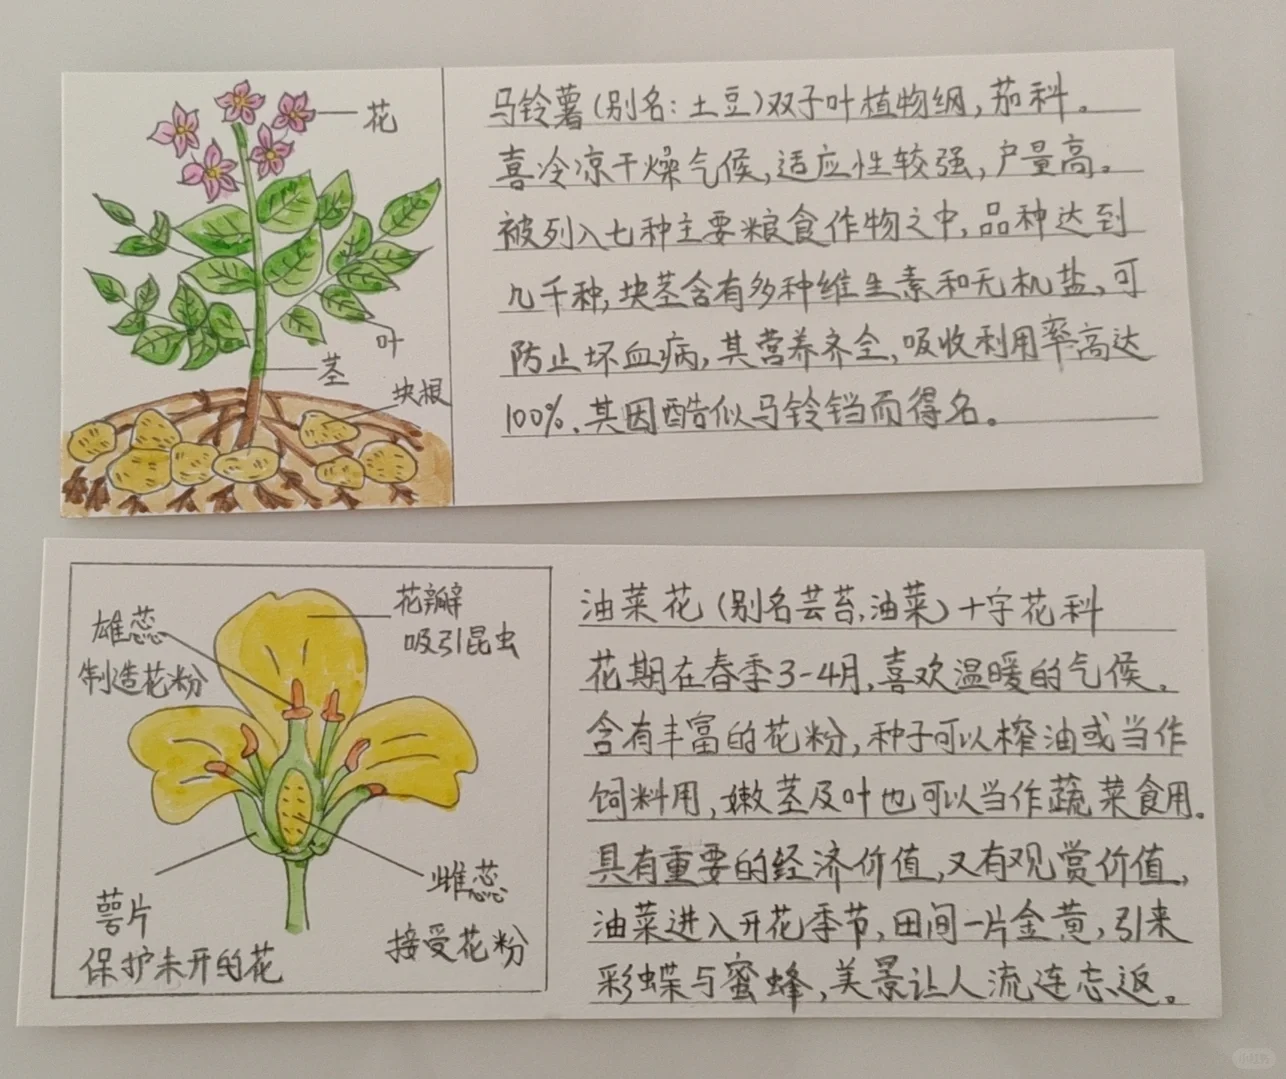 花
叶
茎
块根
马铃薯(别名:土豆)双子叶植物纲,茄科。
喜冷凉干燥气候,适应性较强,产量高。
被列入七种主要粮食作物之中,品种达到
几千种,块茎含有多种维生素和无机盐,可
防止坏血病,其营养齐全,吸收利用率高达
100%,其因酷似马铃铛而得名。
雄蕊
制造花粉
花瓣
吸引昆虫
萼片
保护未开的花
雌蕊
接受花粉
油菜花(别名芸苔,油菜)十字花科
花期在春季3-4月,喜欢温暖的气候。
含有丰富的花粉,种子可以榨油或当作
饲料用,嫩茎及叶也可以当作蔬菜食用。
具有重要的经济价值,又有观赏价值,
油菜进入开花季节,田间一片金黄,引来
彩蝶与蜜蜂,美景让人流连忘返。
小红书